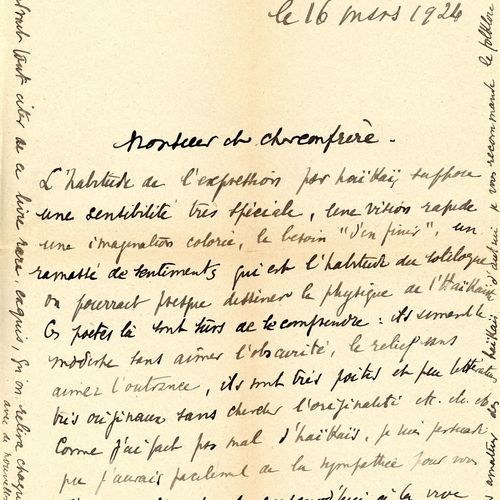 le 16 mars 1924
Monsieur et cher confrère.
L'habitude de l'expression par haïkaï suppose
une sensibilité très spéciale, une vision rapide
une imagination colorée, le besoin "d'en finir", un
ramassé de sentiments qui est l'habitude du
on pourrait presque dessiner le physique de l'Haïkaïste
Ces poètes là sont sûrs de se comprendre : ils aiment le
modeste sans aimer l'obscurité, le relief sans
aimer l'outrance, ils sont très poètes et peu
très originaux sans chercher l'originalité etc. etc. etc.
Comme j'ai fait pas mal d'haïkaïs, je suis persuadé
que j'aurais facilement de la sympathie pour vous
à la
tout citer de ce livre rare, exquis, qu'on relira
avec de nouvelles
amateur des haïkaïs d'autrui je vous recommande le folklore